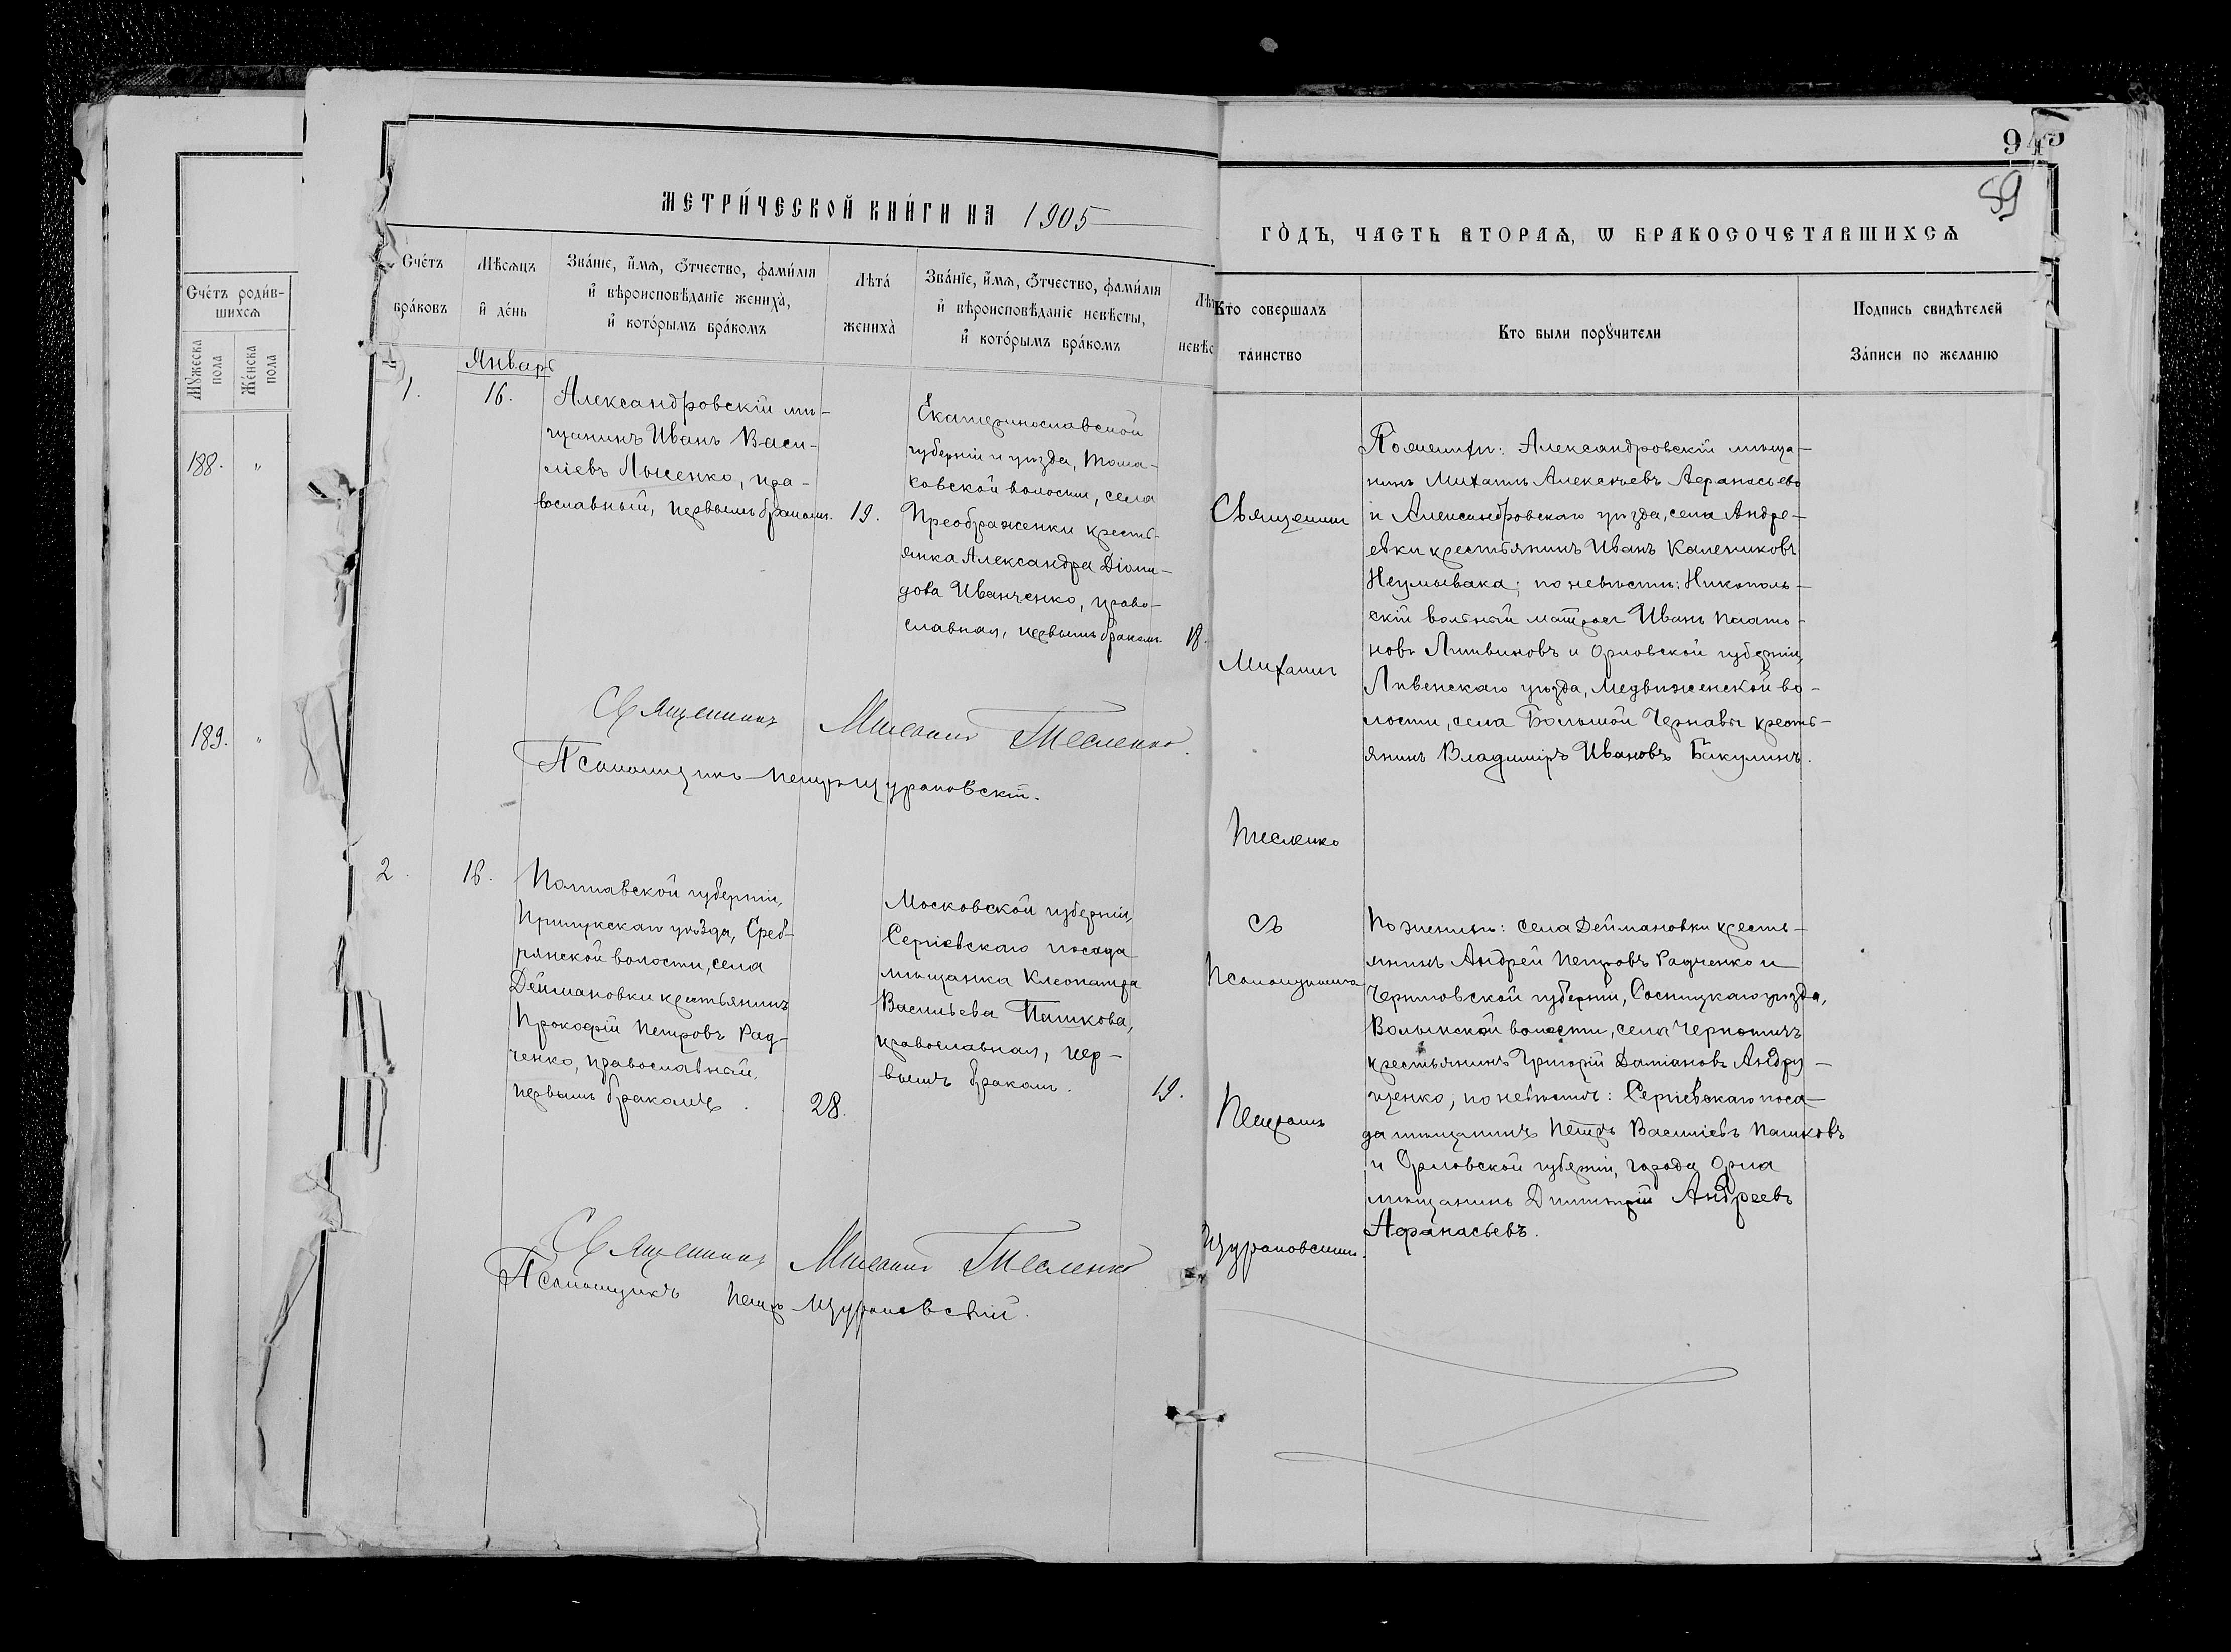 943
59
МЕТРИ́ЧЕСКОЙ КНИ́ГИ НА 1905
ГО́ДЪ, ЧАСТЬ ВТОРАѦ, Ѡ БРАКОСОЧЕТАВШИХСѦ
Сче́тъ роди́в-
шихсѧ
Мꙋ́жеска
пола
Же́нска
пола
188. "
189. "
Сче́тъ
бра́ковъ
Мѣ́сѧцъ
и҆ де́нь
Зва́нїе, и҆́мѧ, ѻ҆́тчество, фами́лїѧ
и҆ вѣроисповѣ́данїе жениха̀,
и҆ кото́рымъ бра́комъ
Лѣта́
жениха̀
Зва́нїе, и҆́мѧ, ѻ҆́тчество, фами́лїѧ
и҆ вѣроисповѣ́данїе невѣ́сты,
и҆ кото́рымъ бра́комъ
Лѣт
невѣс
Кто совершалъ
таинство
Кто были порꙋчители
Подпись свидѣтелей
За́писи по желанїю
Январь
1.
16.
Александровскій мѣ-
щанинъ Иванъ Васи-
ліевъ Лысенко, пра-
вославный, первымъ бракомъ.
19.
Екатеринославской
губерніи и уѣзда, Тома-
ковской волости, села
Преображенки кресть-
янка Александра Діоми-
дова Иванченко, право-
славная, первымъ бракомъ.
18.
Священникъ Михаилъ Тесленко.
Псаломщикъ Петръ Щуровскій.
Священникъ
Михаилъ
Тесленко
съ
Псаломщикомъ
Петромъ
По женихѣ: Александровскій мѣща-
нинъ Михаилъ Алексѣевъ Афанасьевъ
и Александровскаго уѣзда, села Андре-
евки крестьянинъ Иванъ Калениковъ
Неумывака; по невѣстѣ: Никополь-
скій вольный матросъ Иванъ Плато-
новъ Литвиновъ и Орловской губерніи,
Ливенскаго уѣзда, Медвѣженской во-
лости, села Большой Чернавы кресть-
янинъ Владиміръ Ивановъ Бакулинъ.
2.
16.
Полтавской губерніи,
Прилукскаго уѣзда, Среб-
рянской волости, села
Деймановки крестьянинъ
Прокофій Петровъ Рад-
ченко, православный,
первымъ бракомъ.
28.
Московской губерніи,
Сергіевскаго посада
мѣщанка Клеопатра
Васильева Пашкова,
православная, пер-
вымъ бракомъ.
19.
Священникъ Михаилъ Тесленко
Псаломщикъ Петръ
По женихѣ: села Деймановки кресть-
янинъ Андрей Петровъ Радченко и
Черниговской губерніи, Сосницкаго уѣзда,
Волынской волости, села Чернотичъ
крестьянинъ Григорій Даміановъ Андру-
щенко, по невѣстѣ: Сергіевскаго поса-
да мѣщанинъ Петръ Василіевъ Пашковъ
и Орловской губерніи, города Орла
мѣщанинъ Димитрій Андреевъ
Афанасьевъ.